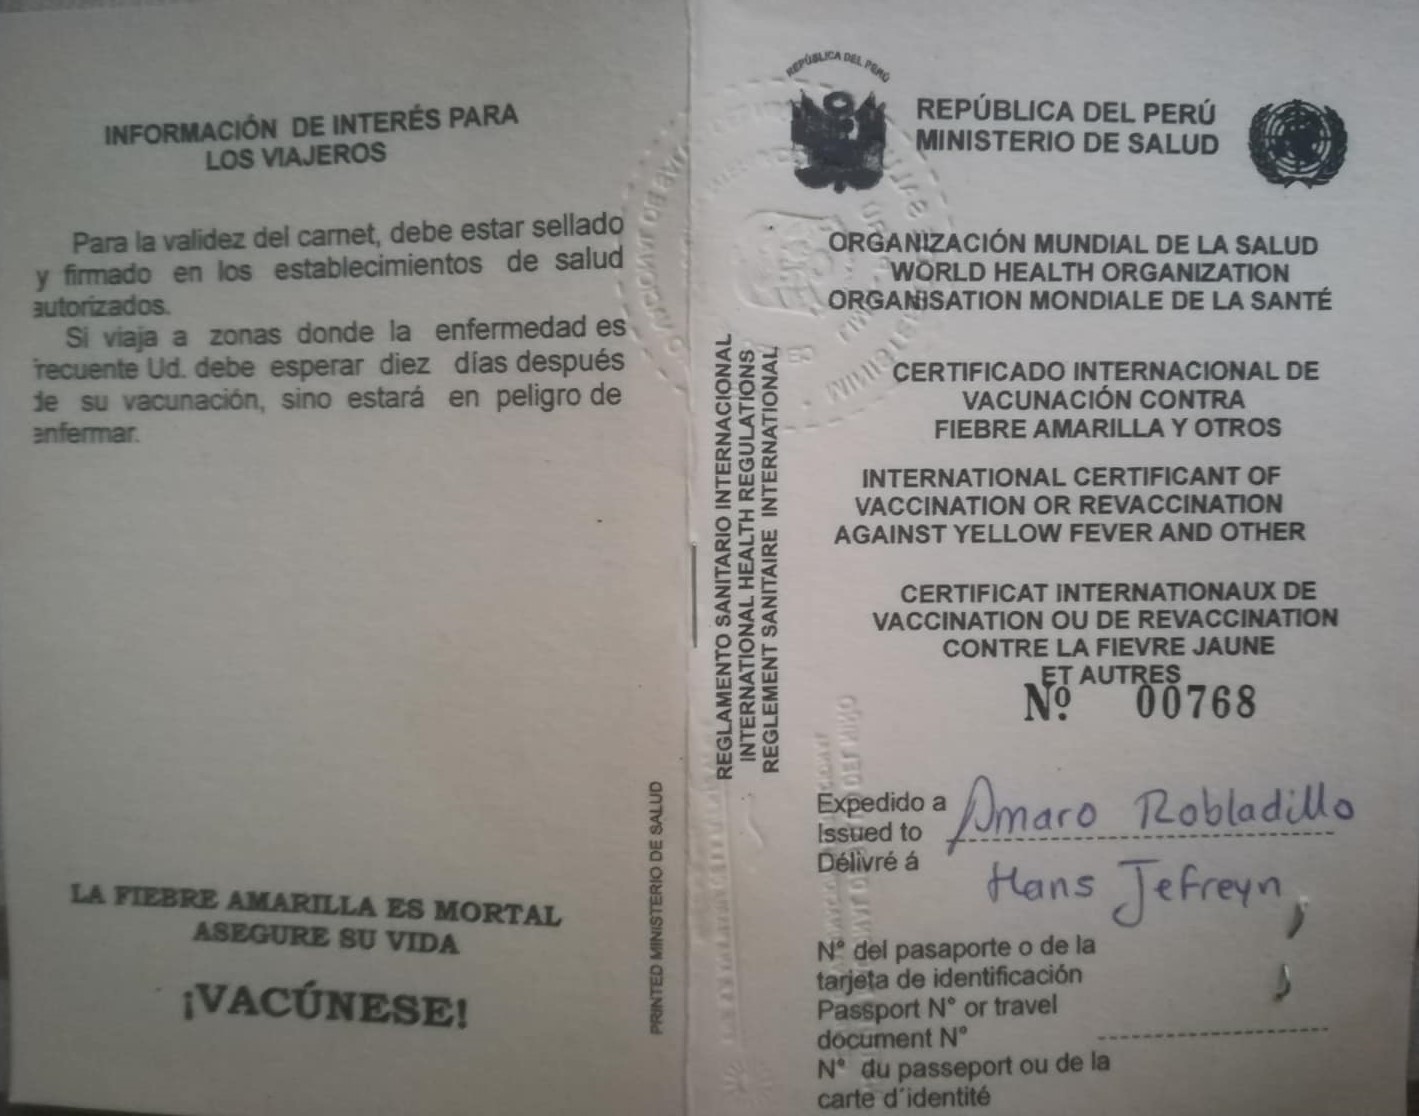 INFORMACIÓN DE INTERÉS PARA
LOS VIAJEROS
Para la validez del carnet, debe estar sellado
y firmado en los establecimientos de salud
autorizados.
Si viaja a zonas donde la enfermedad es
recuente Ud. debe esperar diez días después
de su vacunación, sino estará en peligro de
enfermar.
LA FIEBRE AMARILLA ES MORTAL
ASEGURE SU VIDA
¡VACÚNESE!
PRINTED MINISTERIO DE SALUD
REGLAMENTO SANITARIO INTERNACIONAL
INTERNATIONAL HEALTH REGULATIONS
REGLEMENT SANITAIRE INTERNATIONAL
REPÚBLICA DEL PERÚ
REPÚBLICA DEL PERÚ
MINISTERIO DE SALUD
ORGANIZACIÓN MUNDIAL DE LA SALUD
WORLD HEALTH ORGANIZATION
ORGANISATION MONDIALE DE LA SANTÉ
CERTIFICADO INTERNACIONAL DE
VACUNACIÓN CONTRA
FIEBRE AMARILLA Y OTROS
INTERNATIONAL CERTIFICANT OF
VACCINATION OR REVACCINATION
AGAINST YELLOW FEVER AND OTHER
CERTIFICAT INTERNATIONAUX DE
VACCINATION OU DE REVACCINATION
CONTRE LA FIEVRE JAUNE
ET AUTRES
Nº. 00768
Expedido a Amaro Robladillo
Issued to
Délivré á Hans Jefreyn
N° del pasaporte o de la
tarjeta de identificación
Passport N° or travel
document N°
N° du passeport ou de la
carte d´identité